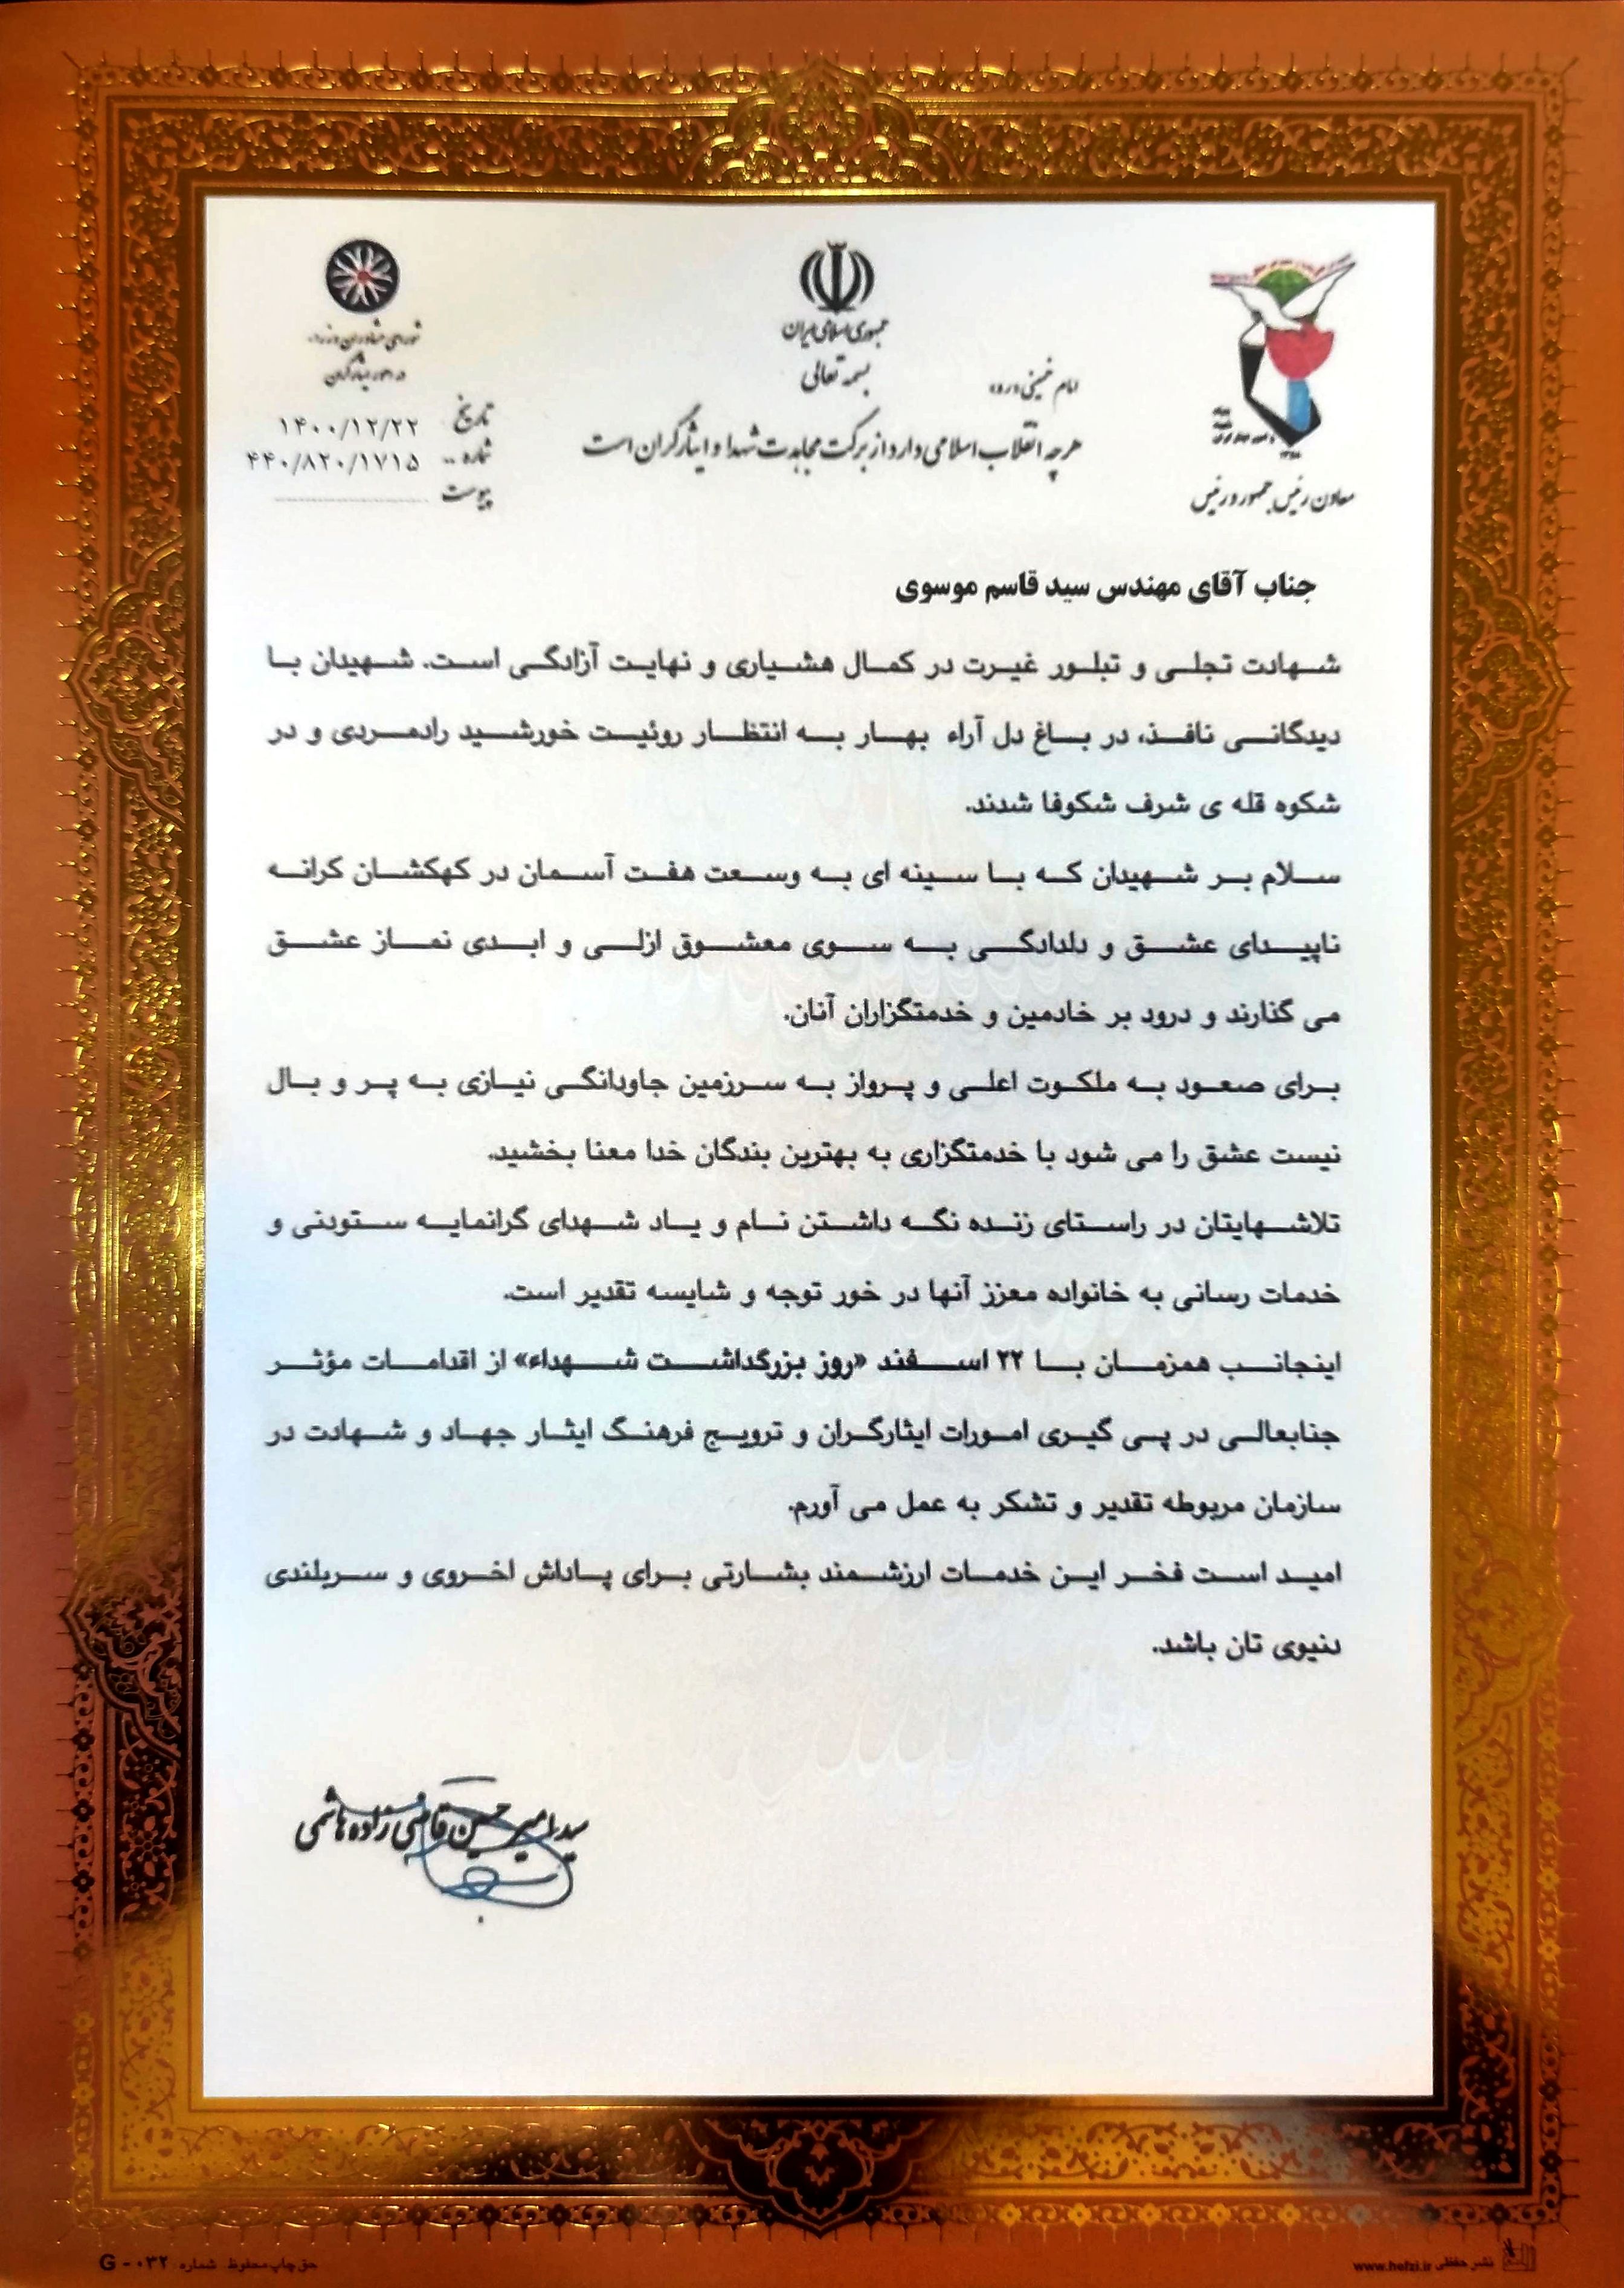 جمهوری اسلامی ایران
بسمه تعالی
امام خمینی «ره»
هرچه انقلاب اسلامی دارد از برکت مجاهدت شهدا و ایثارگران است
معاون رئیس جمهور و رئیس
در امور ایثارگران
تاریخ ۱۴۰۰/۱۲/۲۲
شماره .. ۴۴۰/۸۲۰/۱۷۱۵
پیوست
جناب آقای مهندس سید قاسم موسوی
شهادت تجلی و تبلور غیرت در کمال هشیاری و نهایت آزادگی است. شهیدان با
دیدگانی نافذ، در باغ دل آراء بهار به انتظار روئیت خورشید رادمردی و در
شکوه قله ی شرف شکوفا شدند.
سلام بر شهیدان که با سینه ای به وسعت هفت آسمان در کهکشان کرانه
ناپیدای عشق و دلدادگی به سوی معشوق ازلی و ابدی نماز عشق
می گذارند و درود بر خادمین و خدمتگزاران آنان.
برای صعود به ملکوت اعلی و پرواز به سرزمین جاودانگی نیازی به پر و بال
نیست عشق را می شود با خدمتگزاری به بهترین بندگان خدا معنا بخشید.
تلاشهایتان در راستای زنده نگه داشتن نام و یاد شهدای گرانمایه ستودنی و
خدمات رسانی به خانواده معزز آنها در خور توجه و شایسه تقدیر است.
اینجانب همزمان با ۲۲ اسفند «روز بزرگداشت شهداء» از اقدامات مؤثر
جنابعالی در پی گیری امورات ایثارگران و ترویج فرهنگ ایثار جهاد و شهادت در
سازمان مربوطه تقدیر و تشکر به عمل می آورم.
امید است فخر این خدمات ارزشمند بشارتی برای پاداش اخروی و سربلندی
دنیوی تان باشد.
سید امیرحسین قاضی زاده هاشمی
حق چاپ محفوظ شماره G - ۰۳۲
نشر حفظی www.hefzi.ir